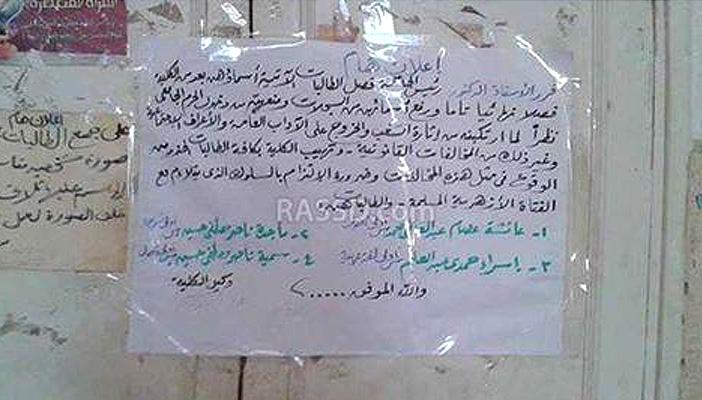 إعلان هام
قرر الأستاذ الدكتور رئيس الجامعة فصل الطالبات الآتية أسماؤهن بعد من الكلية
فصلا نهائيا تاما ورفع أسمائهن من السجلات ومنعهن من دخول الحرم الجامعى
نظراً لما ارتكبنه من إثارة الشغب والخروج على الآداب العامة والأعراف
وغير ذلك من المخالفات القانونية - وتهيب الكلية بكافة الطالبات من
الوقوع فى مثل هذه المخالفات وضرورة الالتزام بالسلوك الذى يتلاءم مع
الفتاة الأزهرية المسلمة - والطالبات هن:
١- عائشة عصام عبد ٢- ماجدة ناصر حسين
٣- إسراء حمدى عبد ٤- سمية ناصر حسين
والله الموفق..... عميد الكلية
RASSD.com
إعلان هام
على جميع الطالبات
صورة شخصية
خلف الصورة